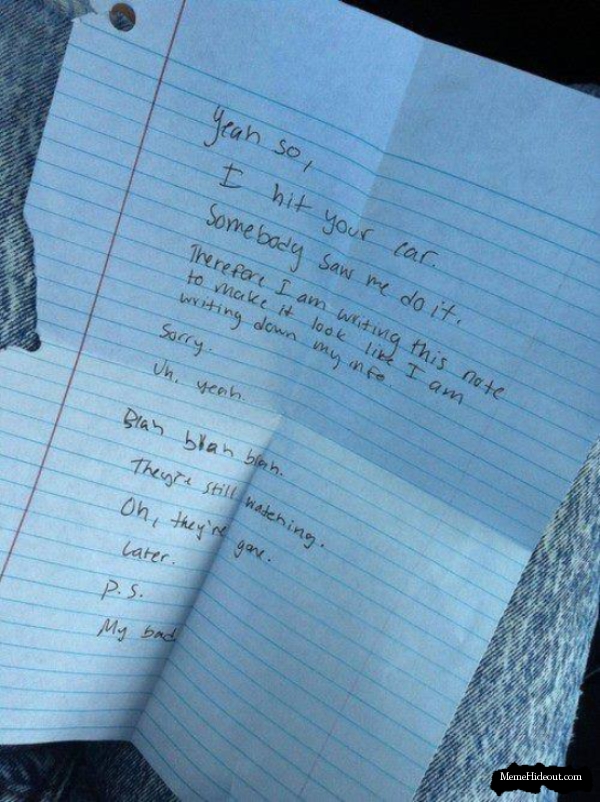 Yeah so,
I hit your car.
Somebody saw me do it.
Therefore I am writing this note
to make it look like I am
writing down my info
Sorry.
Uh, yeah.
Blah blah blah.
They're still watching.
Oh, they're gone.
Later.
P.S.
My bad
MemeHideout.com